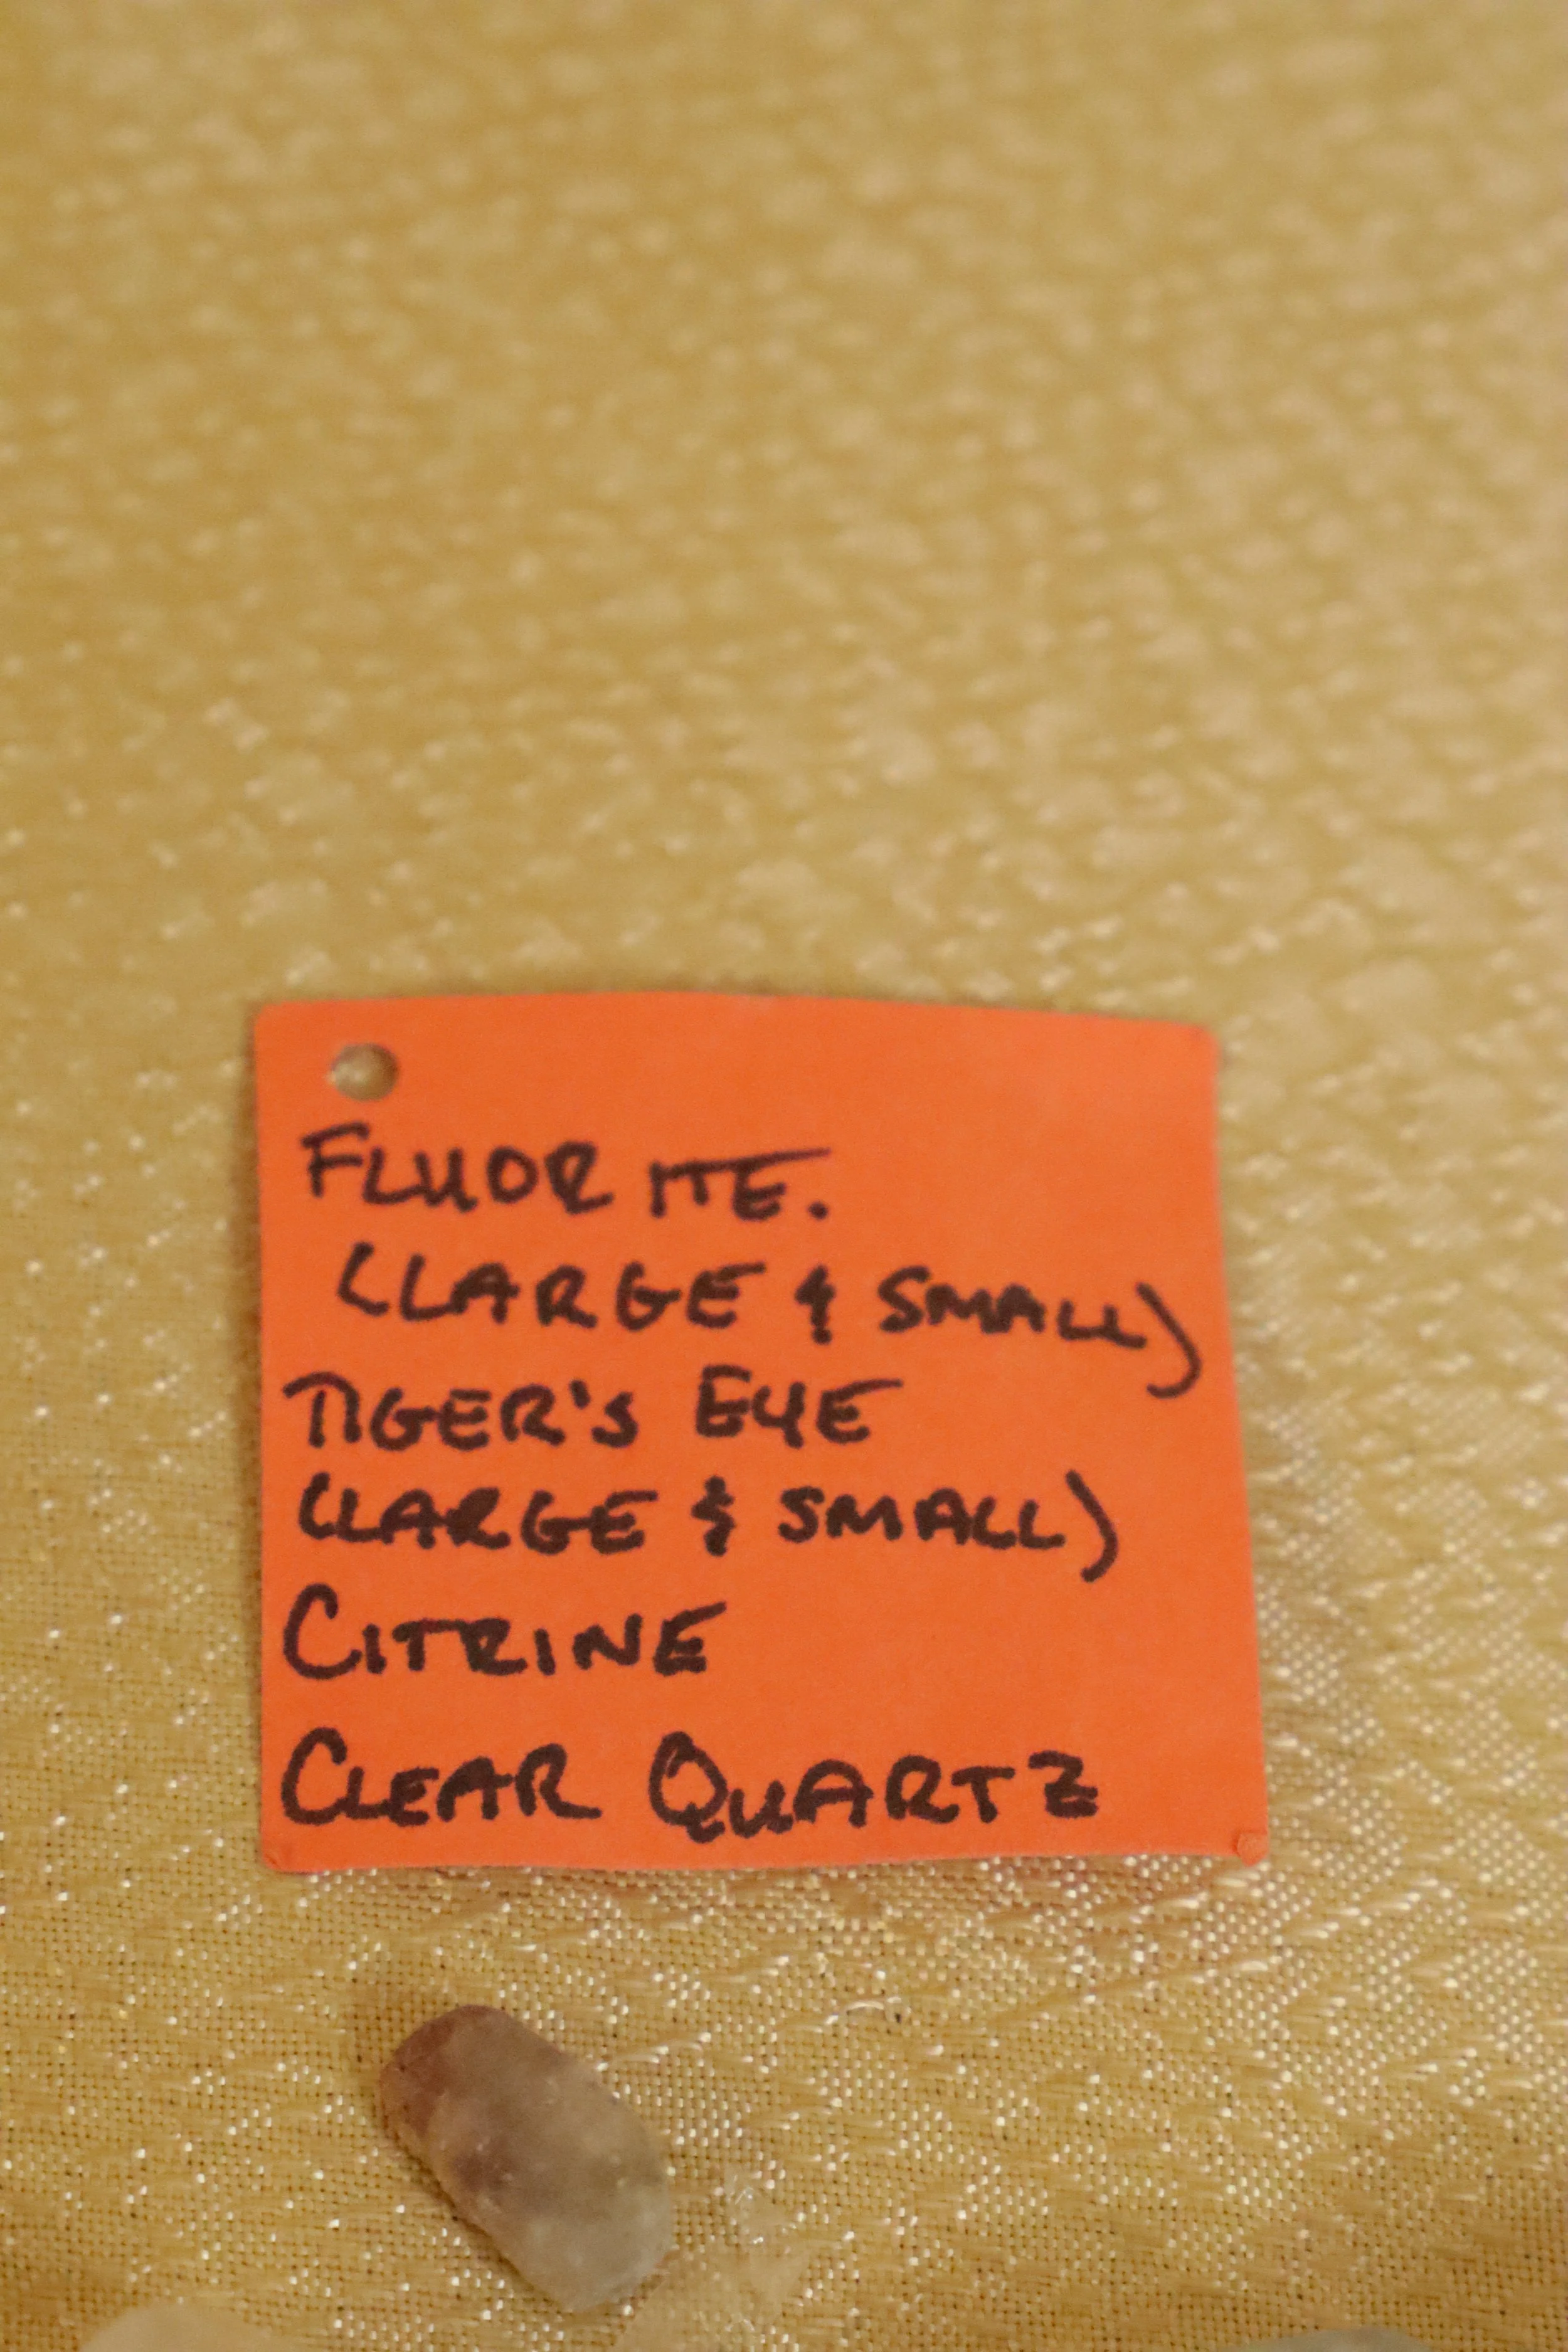 FLUORITE.
(LARGE & SMALL)
TIGER'S EYE
(LARGE & SMALL)
CITRINE
CLEAR QUARTZ